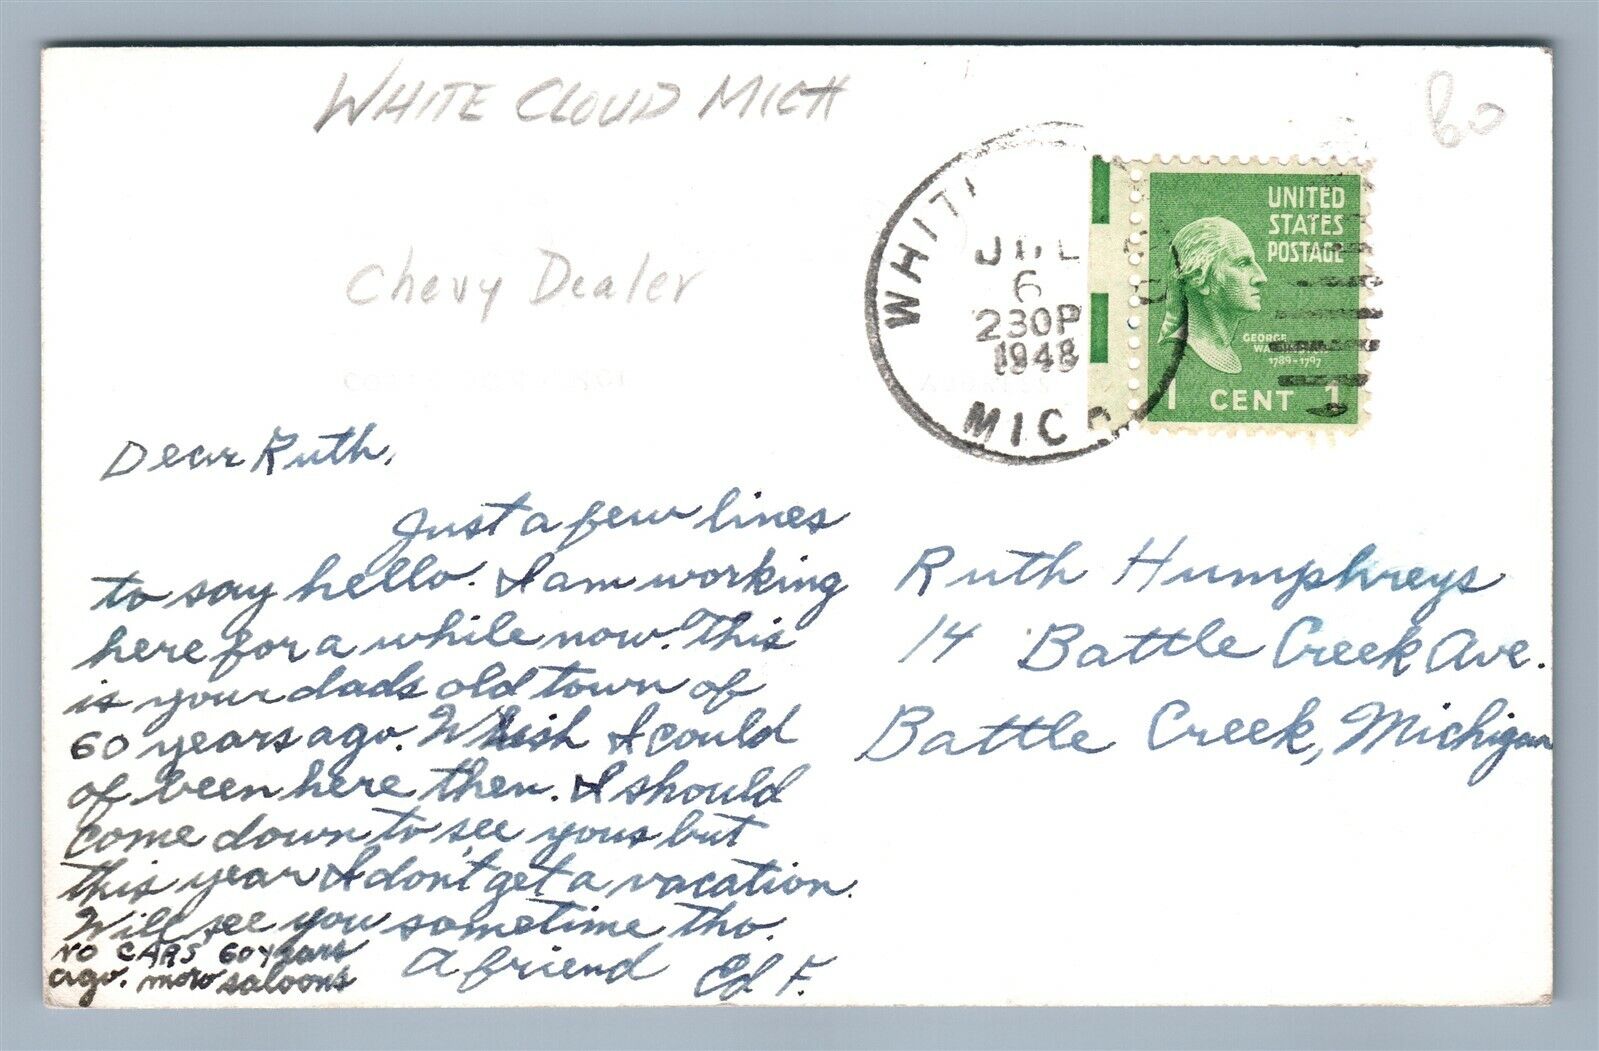 WHITE CLOUD MICH
60
Chevy Dealer
WHIT
JUL
6
230P
1948
MICH
UNITED
STATES
POSTAGE
GEORGE
WA
1789-1797
1 CENT 1
Dear Ruth,
Just a few lines
to say hello. I am working
here for a while now. This
is your dads old town of
60 years ago. Whish I could
of been here then. I should
come down to see yous but
this year I don't get a vacation.
Will see you sometime tho.
A friend Ed F.
NO CARS 60 years
ago. mow saloons
Ruth Humphreys
14 Battle Creek Ave.
Battle Creek, Michigan